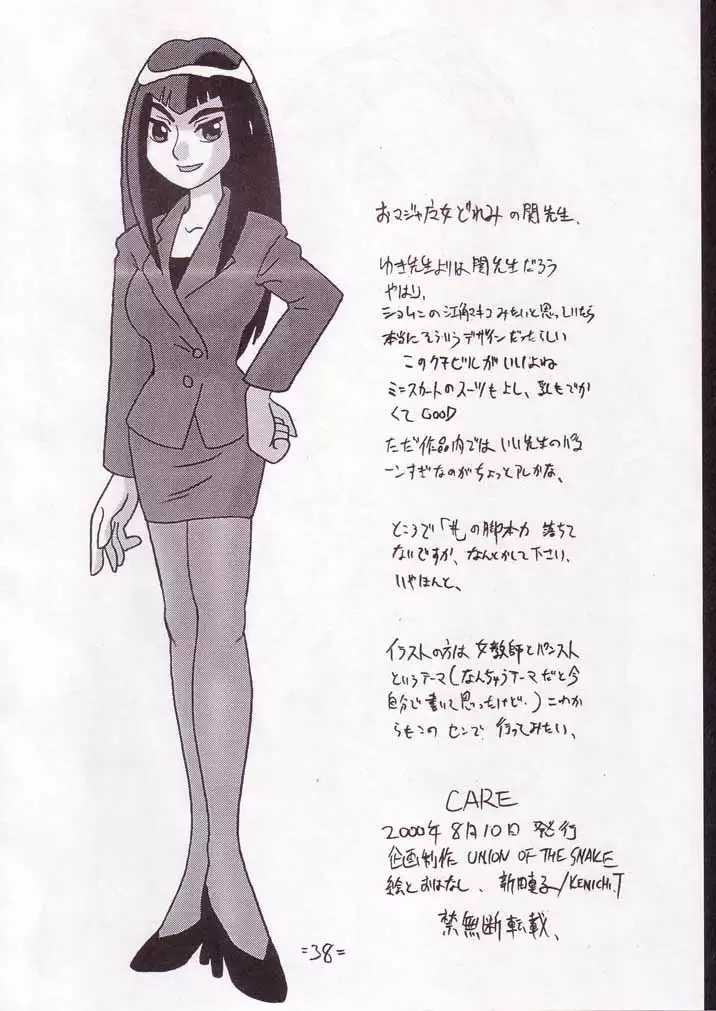 おマジャ魔女どれみの関先生、
ゆき先生よりは関先生だろう
やはり、
ショムニの江角マキコみたいと思っていたら
本当にそういうデザインだったらしい
このクチビルがいいよね
ミニスカートのスーツもよし、乳もでか
くてGOOD
ただ作品内ではいい先生の
ーンすぎなのがちょっとアレかな、
ところで「#」の脚本力 落ちて
ないですか、なんとかして下さい、
いやほんと、
イラストの方は女教師とパンスト
というテーマ(なんちゅうテーマだと今
自分で書いて思ったけど・)これか
らもこのセンで行ってみたい、
CARE
2000年8月10日 発行
企画制作 UNION OF THE SNAKE
絵とおはなし、新田真子/KENICHI.T
禁無断転載、
=38=